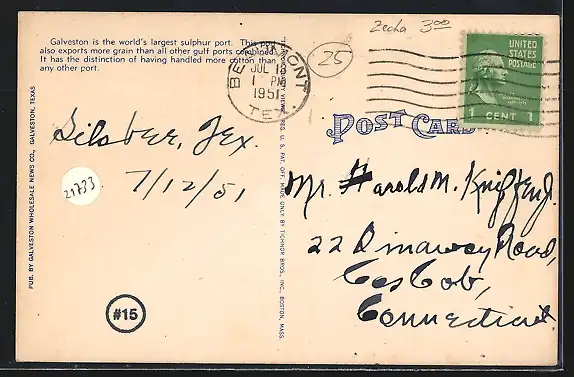 Galveston is the world's largest sulphur port. This port
also exports more grain than all other gulf ports combined.
It has the distinction of having handled more cotton than
any other port.
PUB. BY GALVESTON WHOLESALE NEWS CO., GALVESTON, TEXAS
Silsbee, Tex.
7/12/51
21733
#15
MADE ONLY BY TICHNOR BROS., INC., BOSTON, MASS.
BEAUMONT
JUL 13
1 PM
1951
TEX.
25
3.00
UNITED
STATES
POSTAGE
CENT 1
POST CARD
Mr. Harold M.
22 Road,
Cos Cob,
Connecticut.